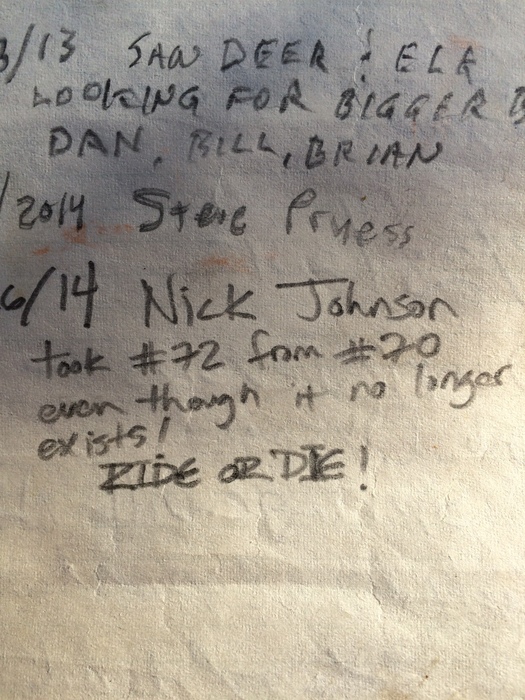 3/13 SAW DEER & ELK
LOOKING FOR BIGGER
DAN, BILL, BRIAN
/2014 Steve Pruess
6/14 Nick Johnson
took #72 from #70
even though it no longer
exists!
RIDE OR DIE!